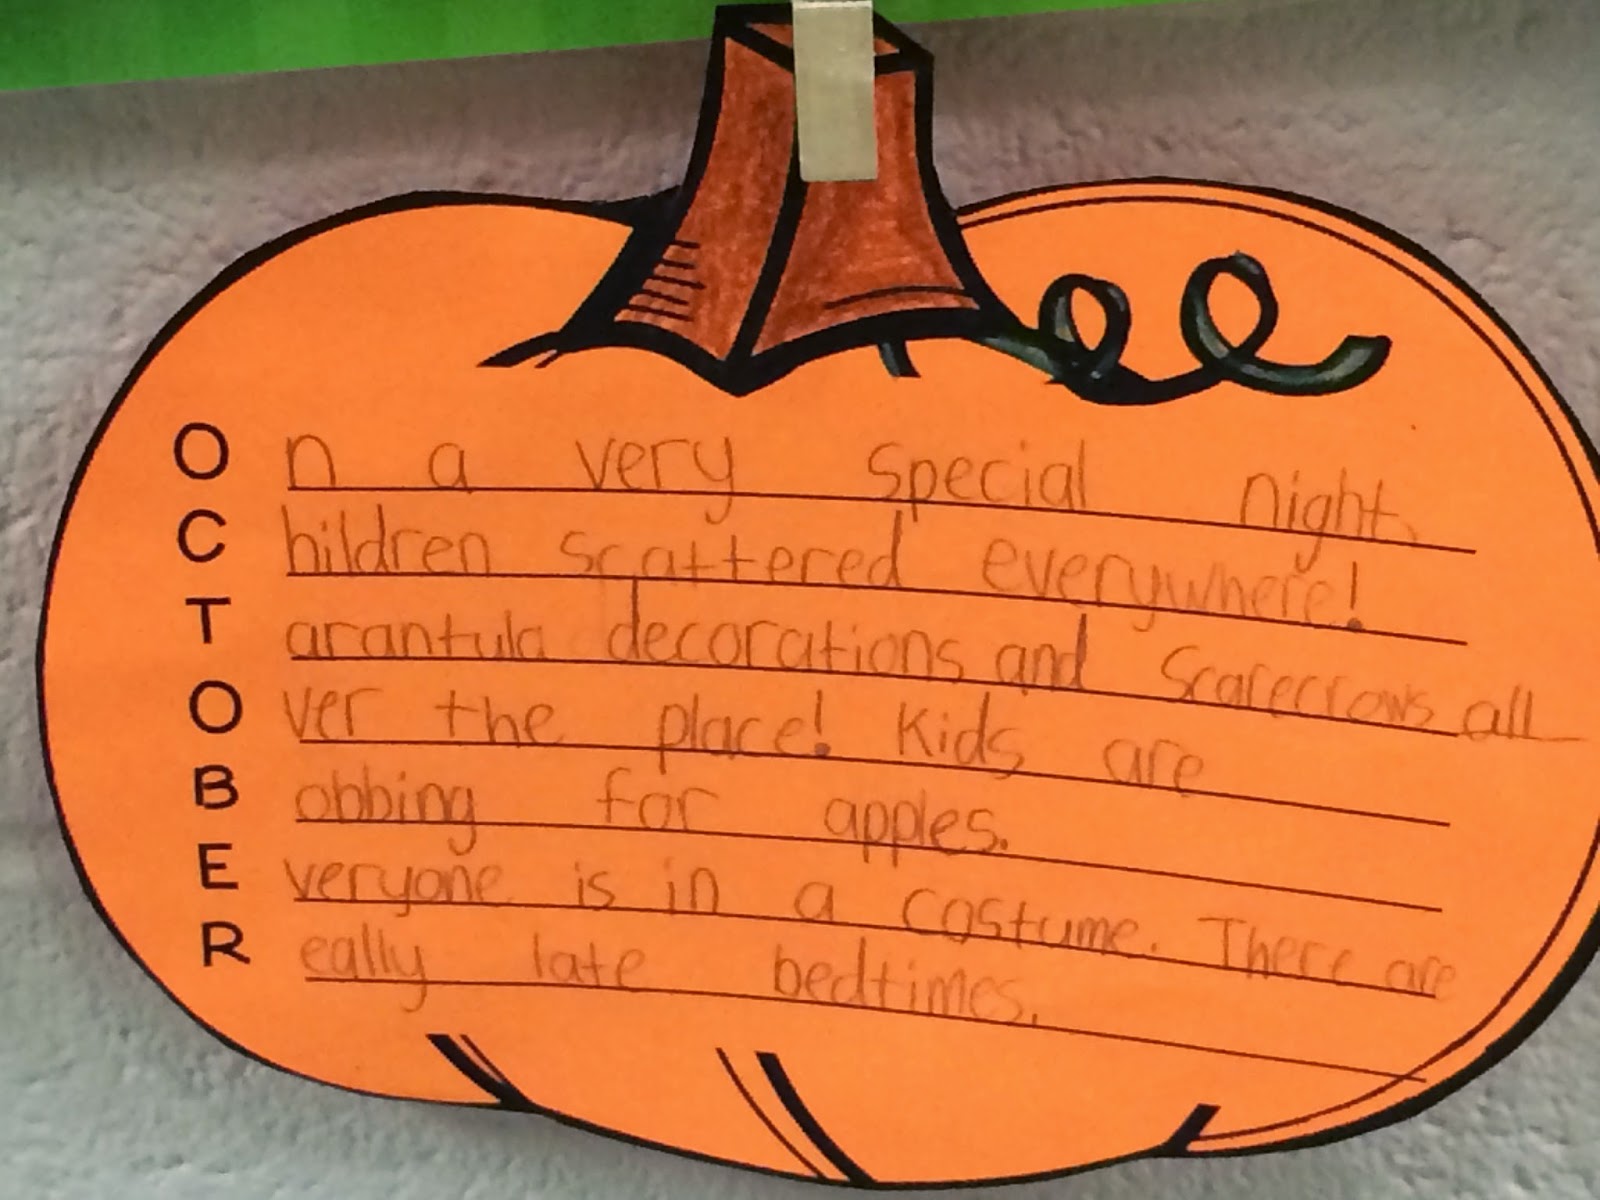 On a very special night,
Children scattered everywhere!
Tarantula decorations and scarecrows all
Over the place! Kids are
Bobbing for apples.
Everyone is in a costume. There are
Really late bedtimes.